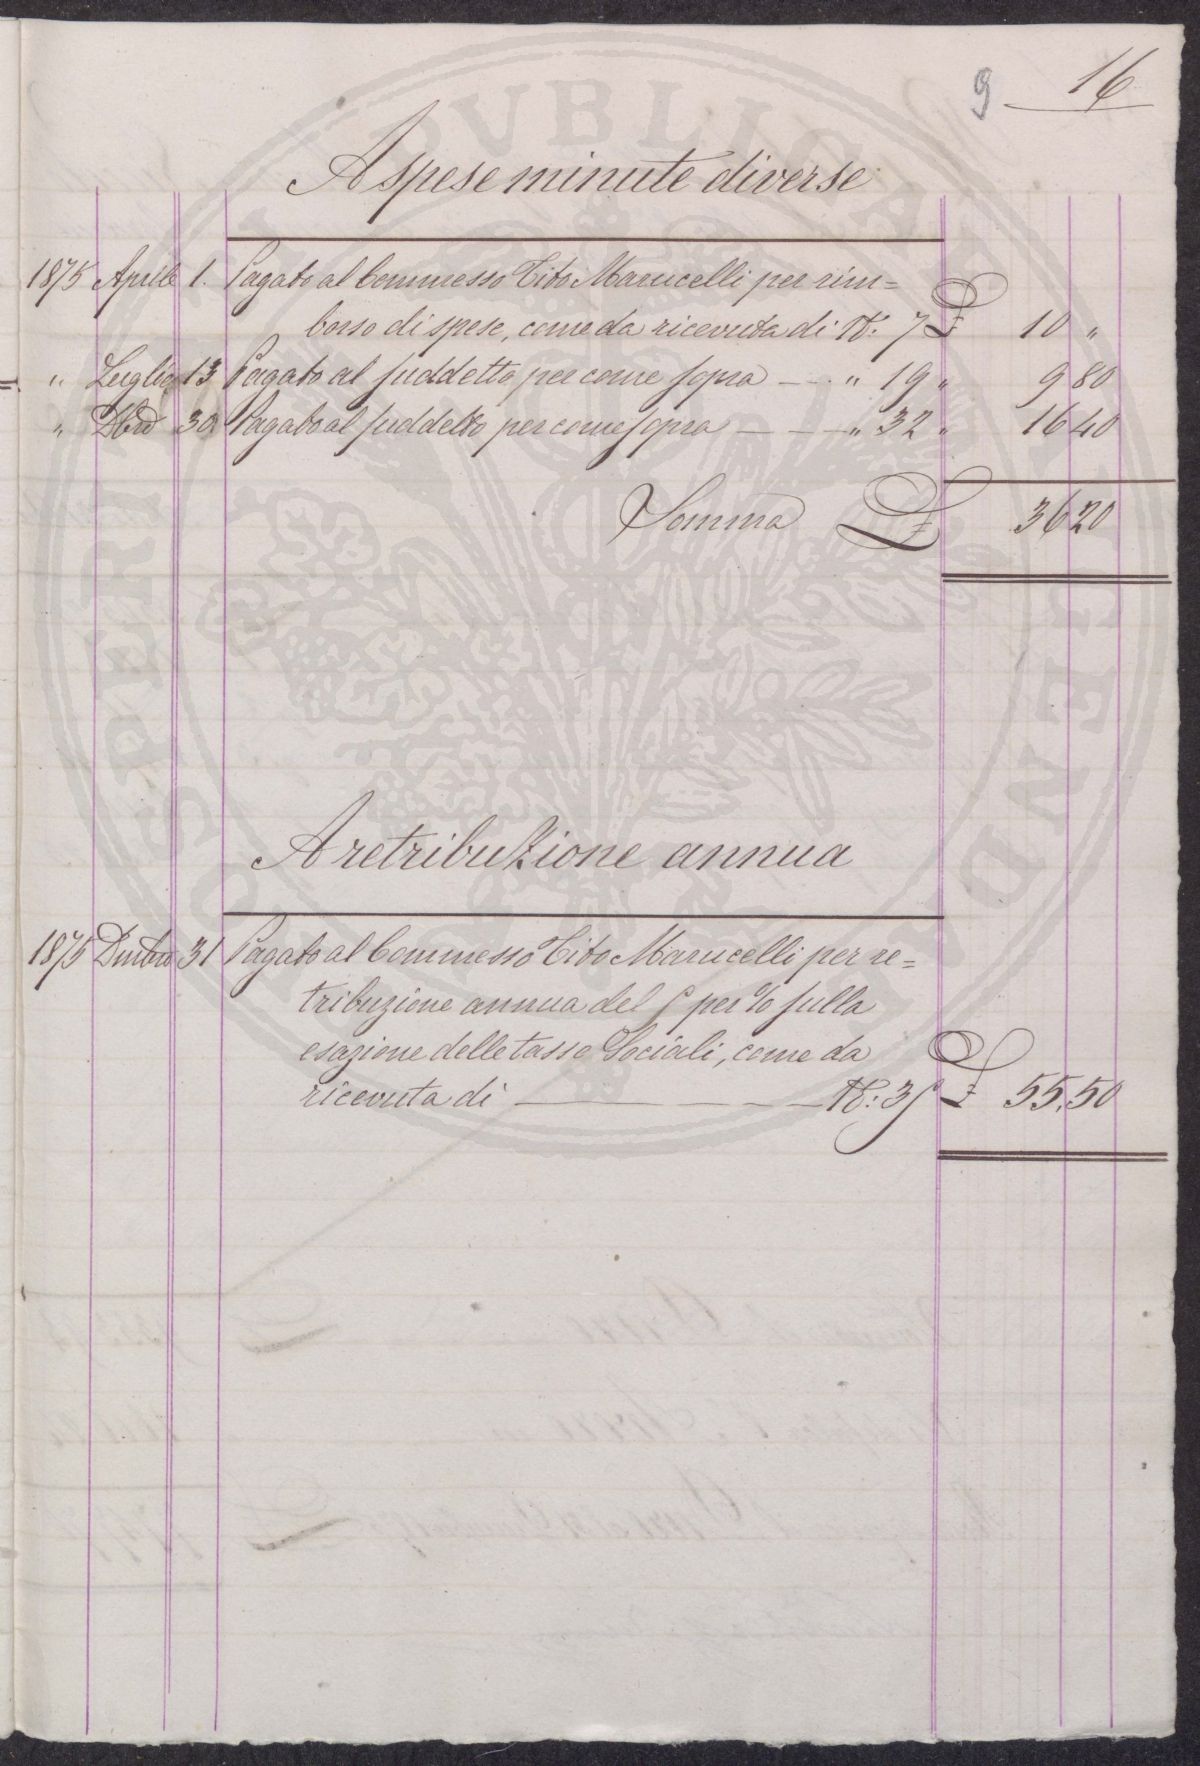 9 16
A spese minute diverse
1875 Aprile 1. Pagato al Commesso Tito Marucelli per rim=
borso di spese, come da ricevuta di N: 7 £ 10 "
" Luglio 13 Pagato al suddetto per come sopra — " 19 " 9 80
" Xbre 30 Pagato al suddetto per come sopra — — — " 32 " 16 40
Somma £ 36 20
A retribuzione annua
1875 Dmbre 31 Pagato al Commesso Tito Marucelli per re=
tribuzione annua del 5 per % sulla
esazione delle tasse Sociali, come da
ricevuta di — N: 35 £ 55,50